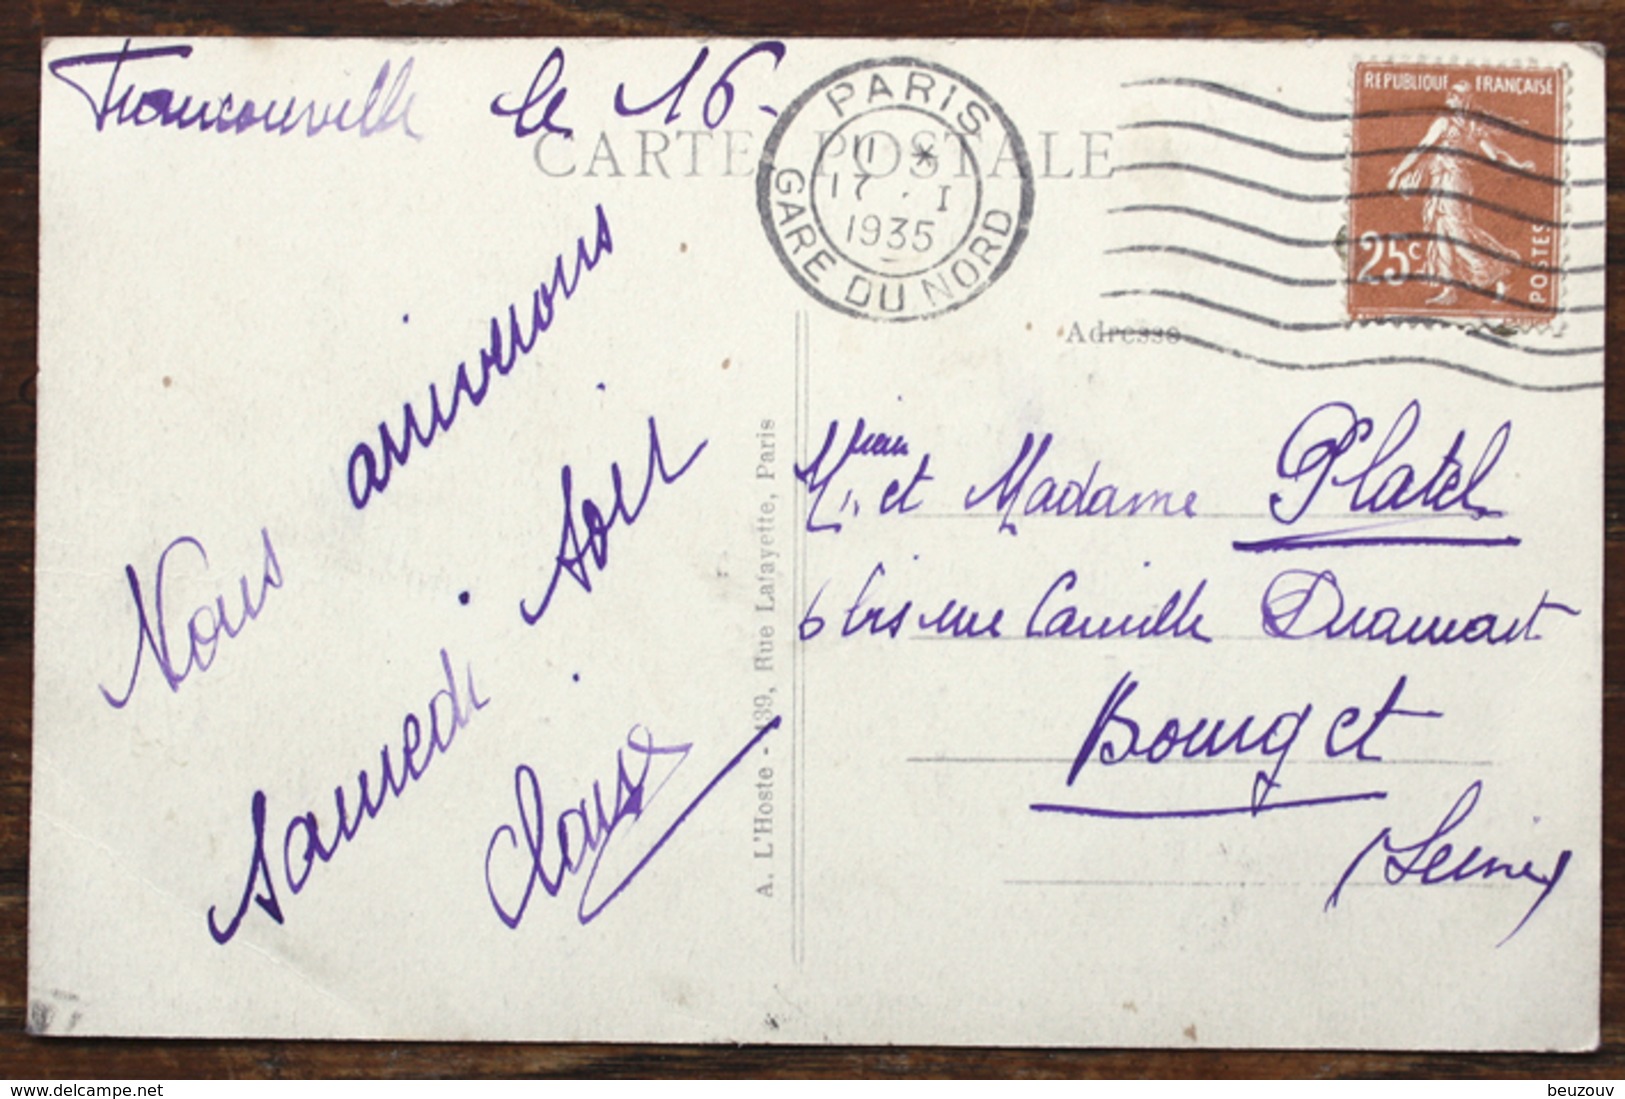 Franconville le 16-
CARTE POSTALE
PARIS
11 *
17 . I
1935
GARE DU NORD
REPUBLIQUE FRANÇAISE
25c
POSTES
Adresse
Nous arriverons
Samedi soir
A. L'Hoste - 139, Rue Lafayette, Paris
et Madame Platel
6 bis rue Camille
Bourget
(Seine)
delcampe.net
beuzouv